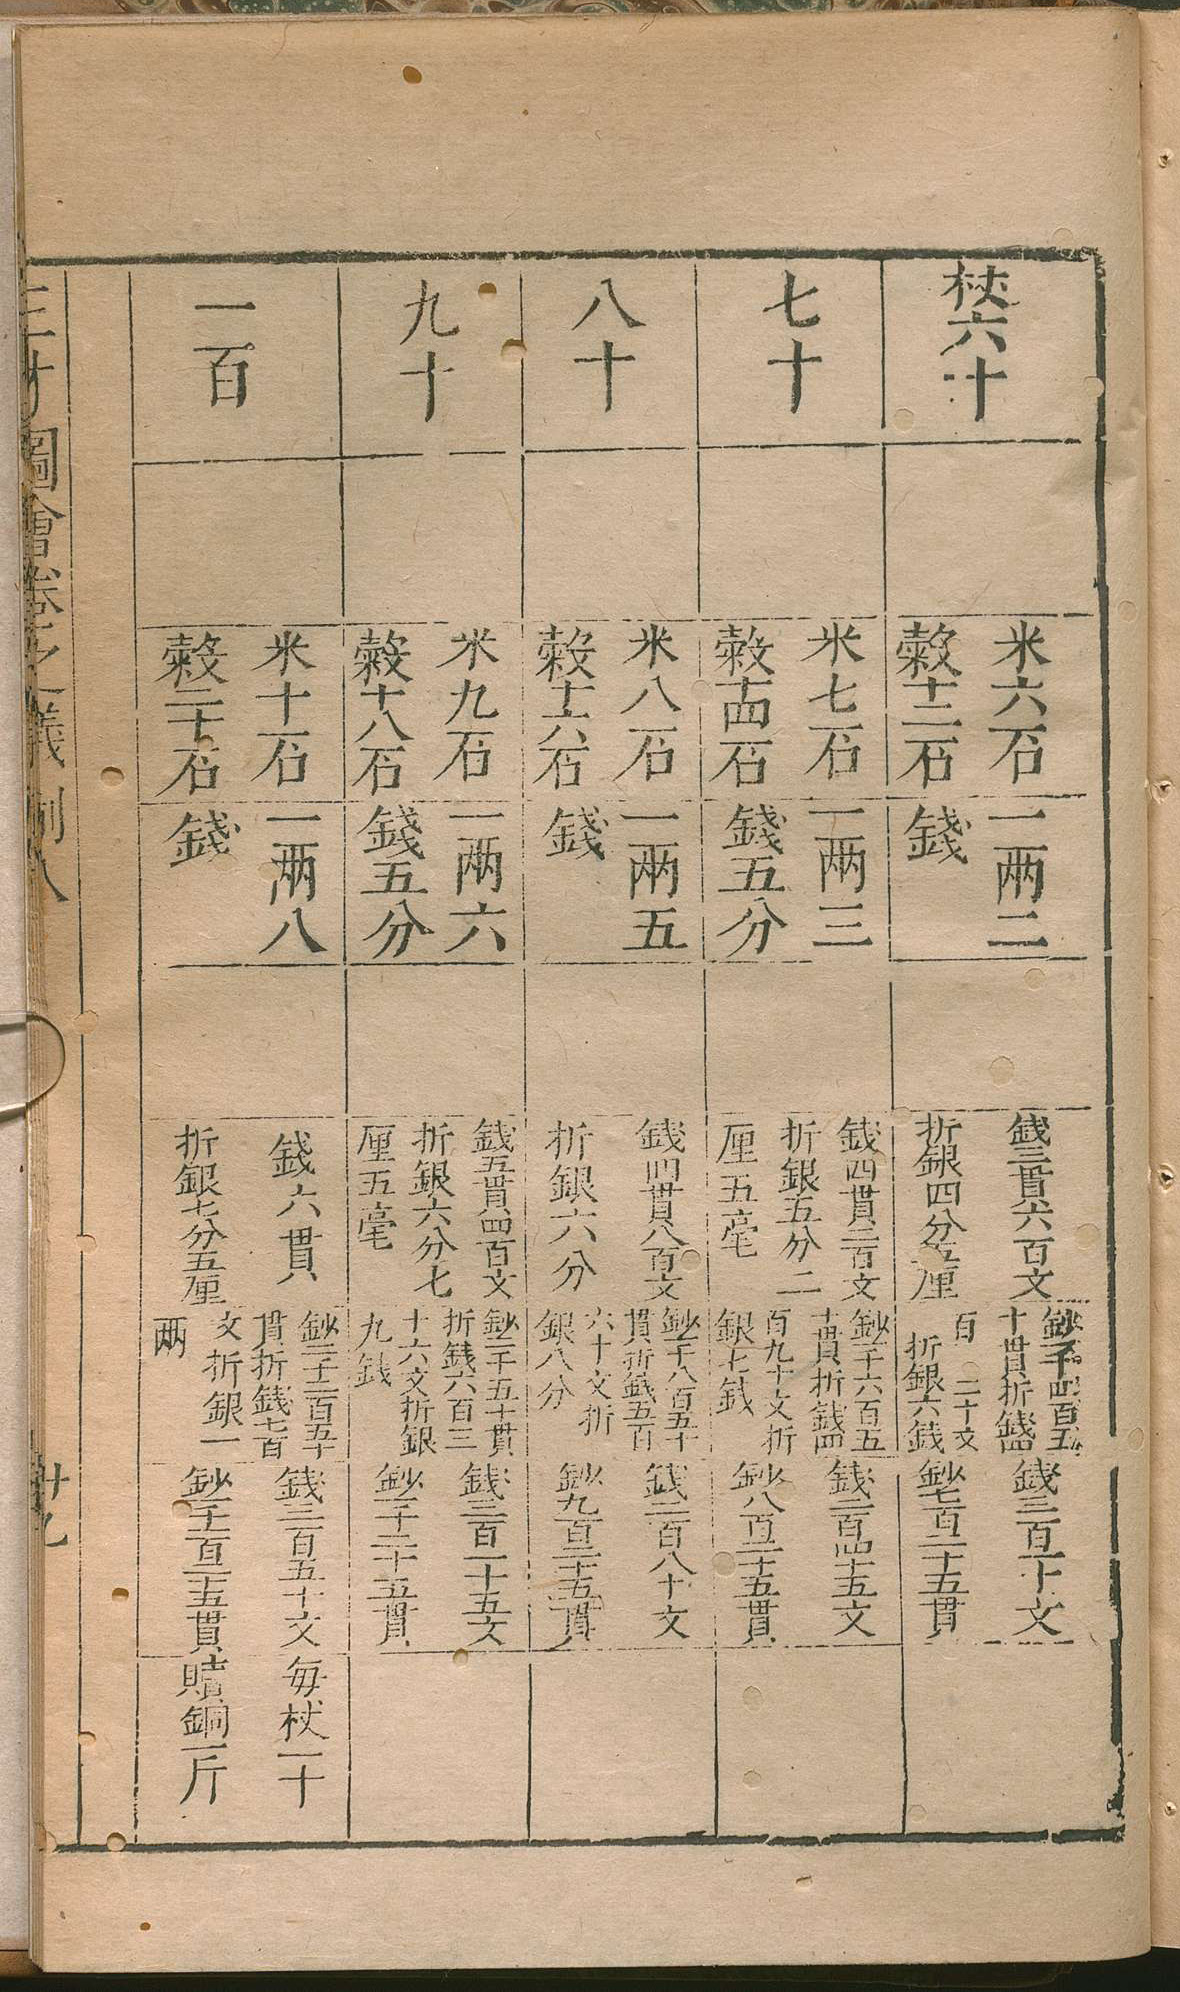 杖六十
米六石
榖十二石
一兩二
錢
錢三貫六百文
折銀四分五厘
鈔一千四百五
十貫折錢四
百二十文
折銀六錢
錢二百一十文
鈔七百二十五貫
七十
米七石
榖十四石
一兩三
錢五分
錢四貫二百文
折銀五分二
厘五毫
鈔一千六百五
十貫折錢四
百九十文折
銀七錢
錢二百四十五文
鈔八百二十五貫
八十
米八石
榖十六石
一兩五
錢
錢四貫八百文
折銀六分
鈔一千八百五十
貫折錢五百
六十文折
銀八分
錢二百八十文
鈔九百二十五貫
九十
米九石
榖十八石
一兩六
錢五分
錢五貫四百文
折銀六分七
厘五毫
鈔二千五十貫
折錢六百三
十六文折銀
九錢
錢三百一十五文
鈔一千二十五貫
一百
米十石
榖二十石
一兩八
錢
錢六貫
折銀七分五厘
鈔二千二百五十
貫折錢七百
文折銀一
兩
錢三百五十文
鈔一千一百二十五貫
每杖一十
贖銅一斤
三才圖會卷之 儀制八
廿九